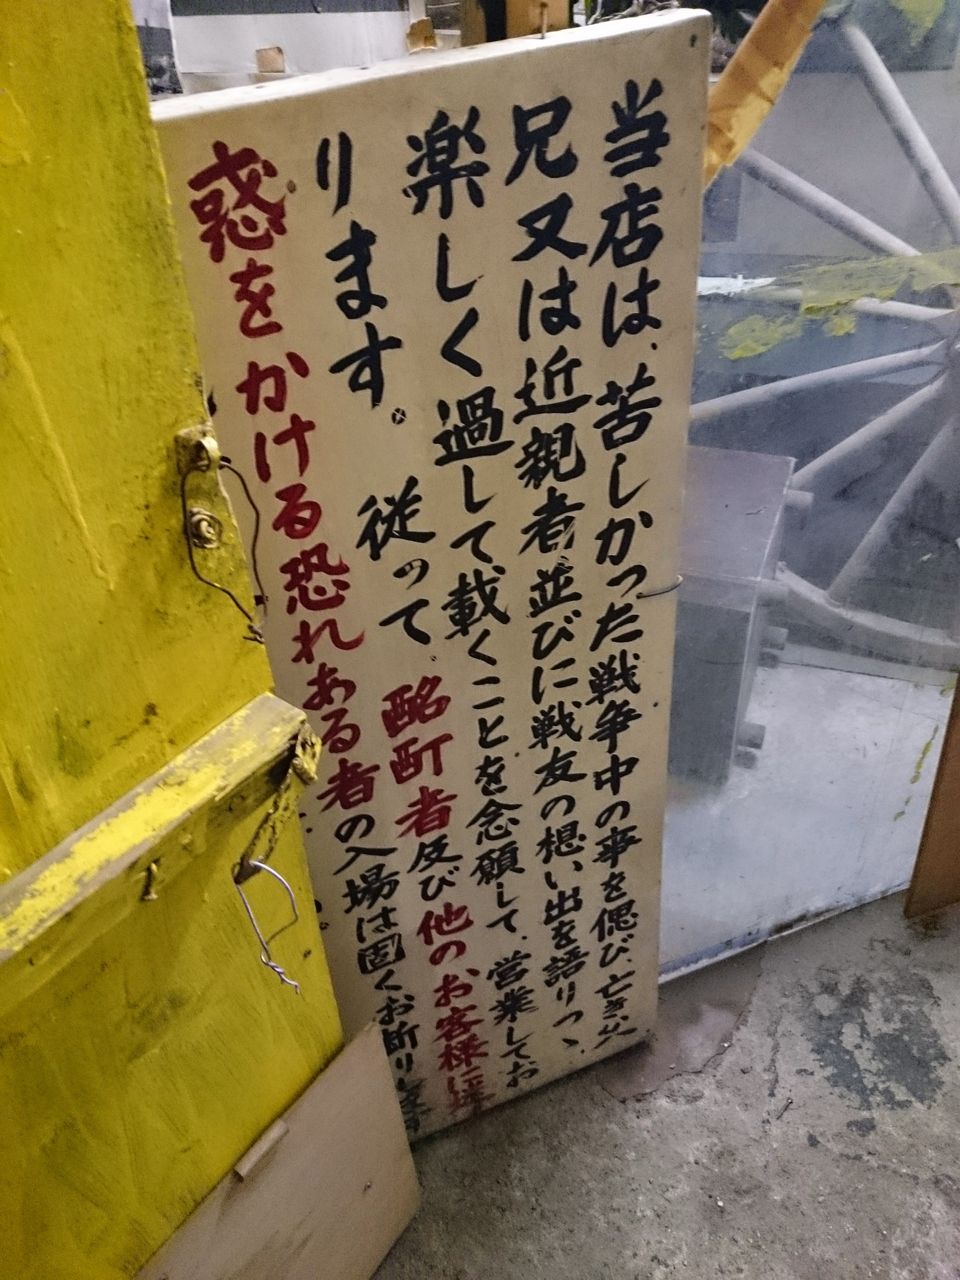 当店は、苦しかった戦争中の事を偲び、亡き父
兄又は近親者並びに戦友の想い出を語りつゝ
楽しく過して載くことを念願して、営業してお
ります。従って、酩酊者及び他のお客様に迷
惑をかける恐れある者の入場は固くお断りします